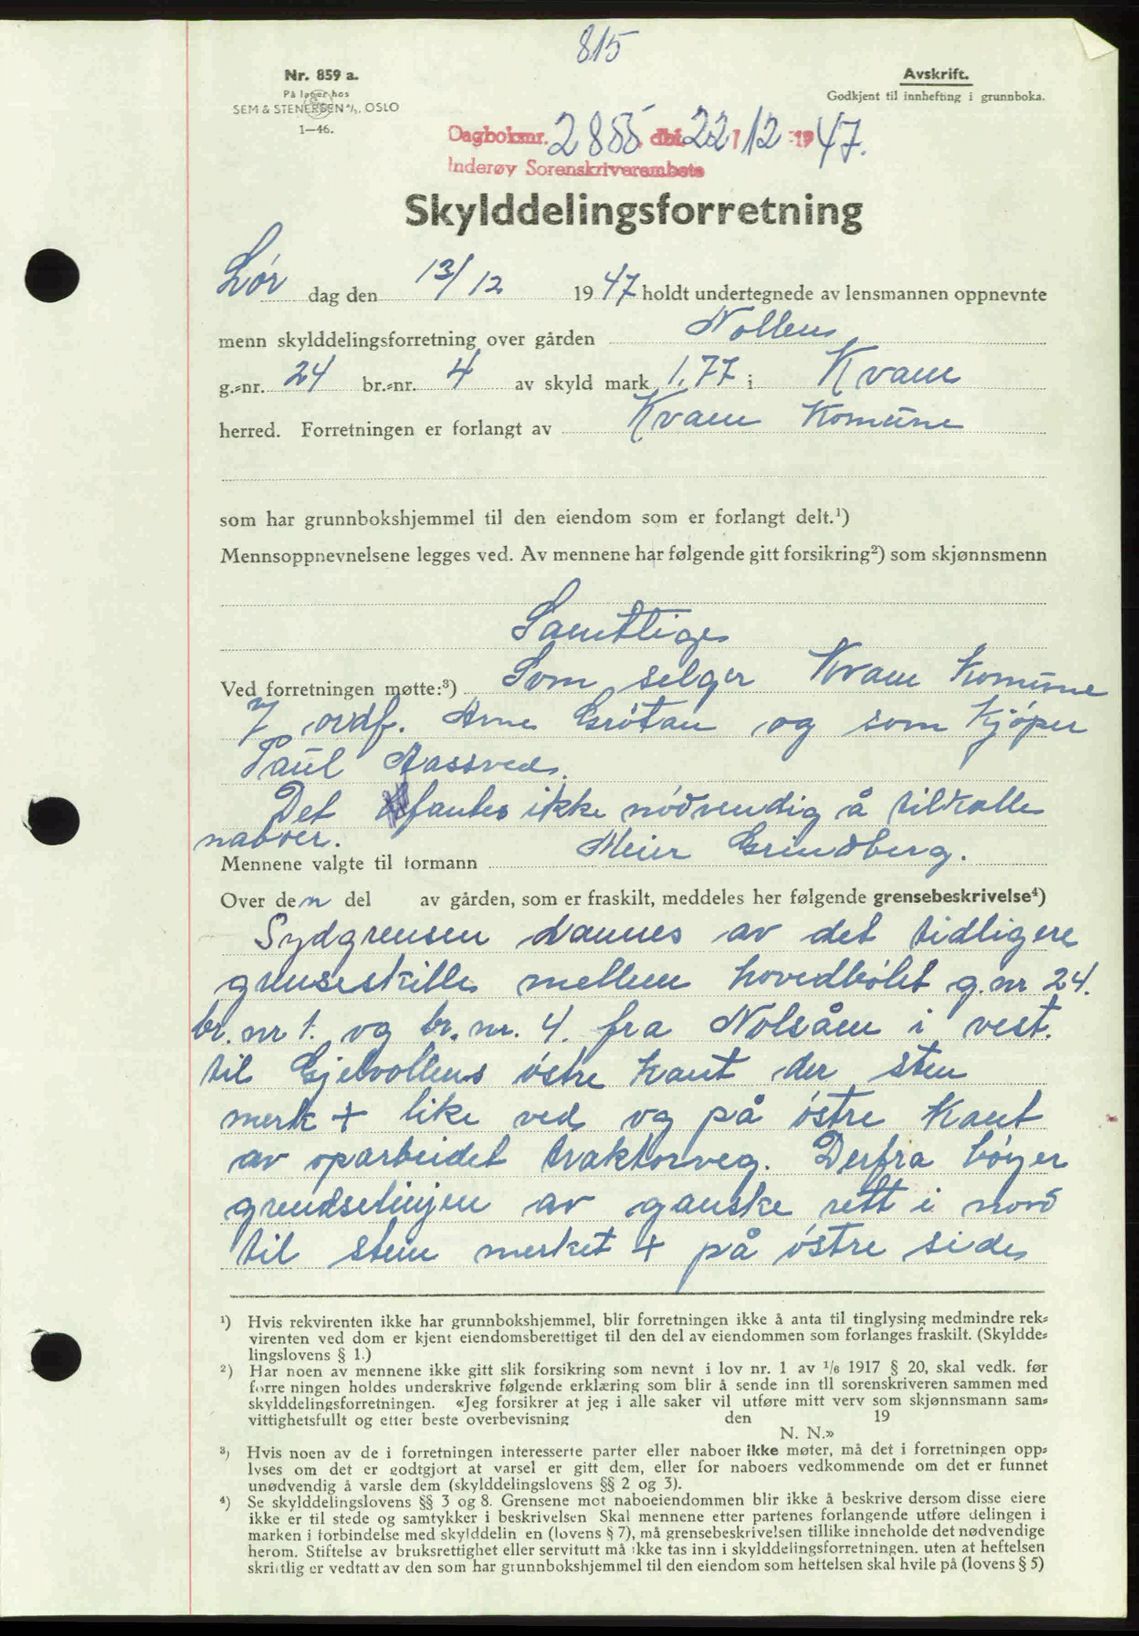 815
Nr. 859 a.
På lager hos
SEM & STENERSEN A/S, OSLO
1—46.
Avskrift.
Godkjent til innhefting i grunnboka.
Dagboksnr. 2855 dbf. 22/12 1947.
Inderøy Sorenskriverembete
Skylddelingsforretning
Lør dag den 13/12 1947 holdt undertegnede av lensmannen oppnevnte
menn skylddelingsforretning over gården Nollens
g.-nr. 24 br.-nr. 4 av skyld mark 1.77 i Kvam
herred. Forretningen er forlangt av Kvam Komune
som har grunnbokshjemmel til den eiendom som er forlangt delt.¹)
Mennsoppnevnelsene legges ved. Av mennene har følgende gitt forsikring²) som skjønnsmenn
Samtlige
Ved forretningen møtte:³) Som selger Kvam Komune
v/ ordf. Arne Grötan og som kjøper
Paul Aassved.
Det fantes ikke nødvendig å tilkalle
naboer.
Mennene valgte til formann Meier Grindberg.
Over den del av gården, som er fraskilt, meddeles her følgende grensebeskrivelse⁴)
Sydgrensen dannes av det tidligere
grenseskille mellem hovedbølet g.nr 24.
br. nr 1. og br. nr. 4. fra Nolsåen i vest.
til Gjelvollens østre kant der sten
merk + like ved og på østre kant
av oparbeidet traktorveg. Derfra bøyer
grendselinjen av ganske rett i nord
til sten merket + på østre side
¹) Hvis rekvirenten ikke har grunnbokshjemmel, blir forretningen ikke å anta til tinglysing medmindre rek-
virenten ved dom er kjent eiendomsberettiget til den del av eiendommen som forlanges fraskilt. (Skyldde-
lingslovens § 1.)
²) Har noen av mennene ikke gitt slik forsikring som nevnt i lov nr. 1 av 1/6 1917 § 20, skal vedk. før
forretningen holdes underskrive følgende erklæring som blir å sende inn til sorenskriveren sammen med
skylddelingsforretningen. «Jeg forsikrer at jeg i alle saker vil utføre mitt verv som skjønnsmann sam-
vittighetsfullt og etter beste overbevisning den 19
N. N.»
³) Hvis noen av de i forretningen interesserte parter eller naboer ikke møter, må det i forretningen opp-
lyses om det er godtgjort at varsel er gitt dem, eller for naboers vedkommende om det er funnet
unødvendig å varsle dem (skylddelingslovens §§ 2 og 3).
⁴) Se skylddelingslovens §§ 3 og 8. Grensene mot naboeiendommen blir ikke å beskrive dersom disse eiere
ikke er til stede og samtykker i beskrivelsen Skal mennene etter partenes forlangende utføre delingen i
marken i forbindelse med skylddelingen (lovens § 7), må grensebeskrivelsen tillike inneholde det nødvendige
herom. Stiftelse av bruksrettighet eller servitutt må ikke tas inn i skylddelingsforretningen, uten at heftelsen
skriftlig er vedtatt av den som har grunnbokshjemmel til den eiendom som heftelsen skal hvile på (lovens § 5)